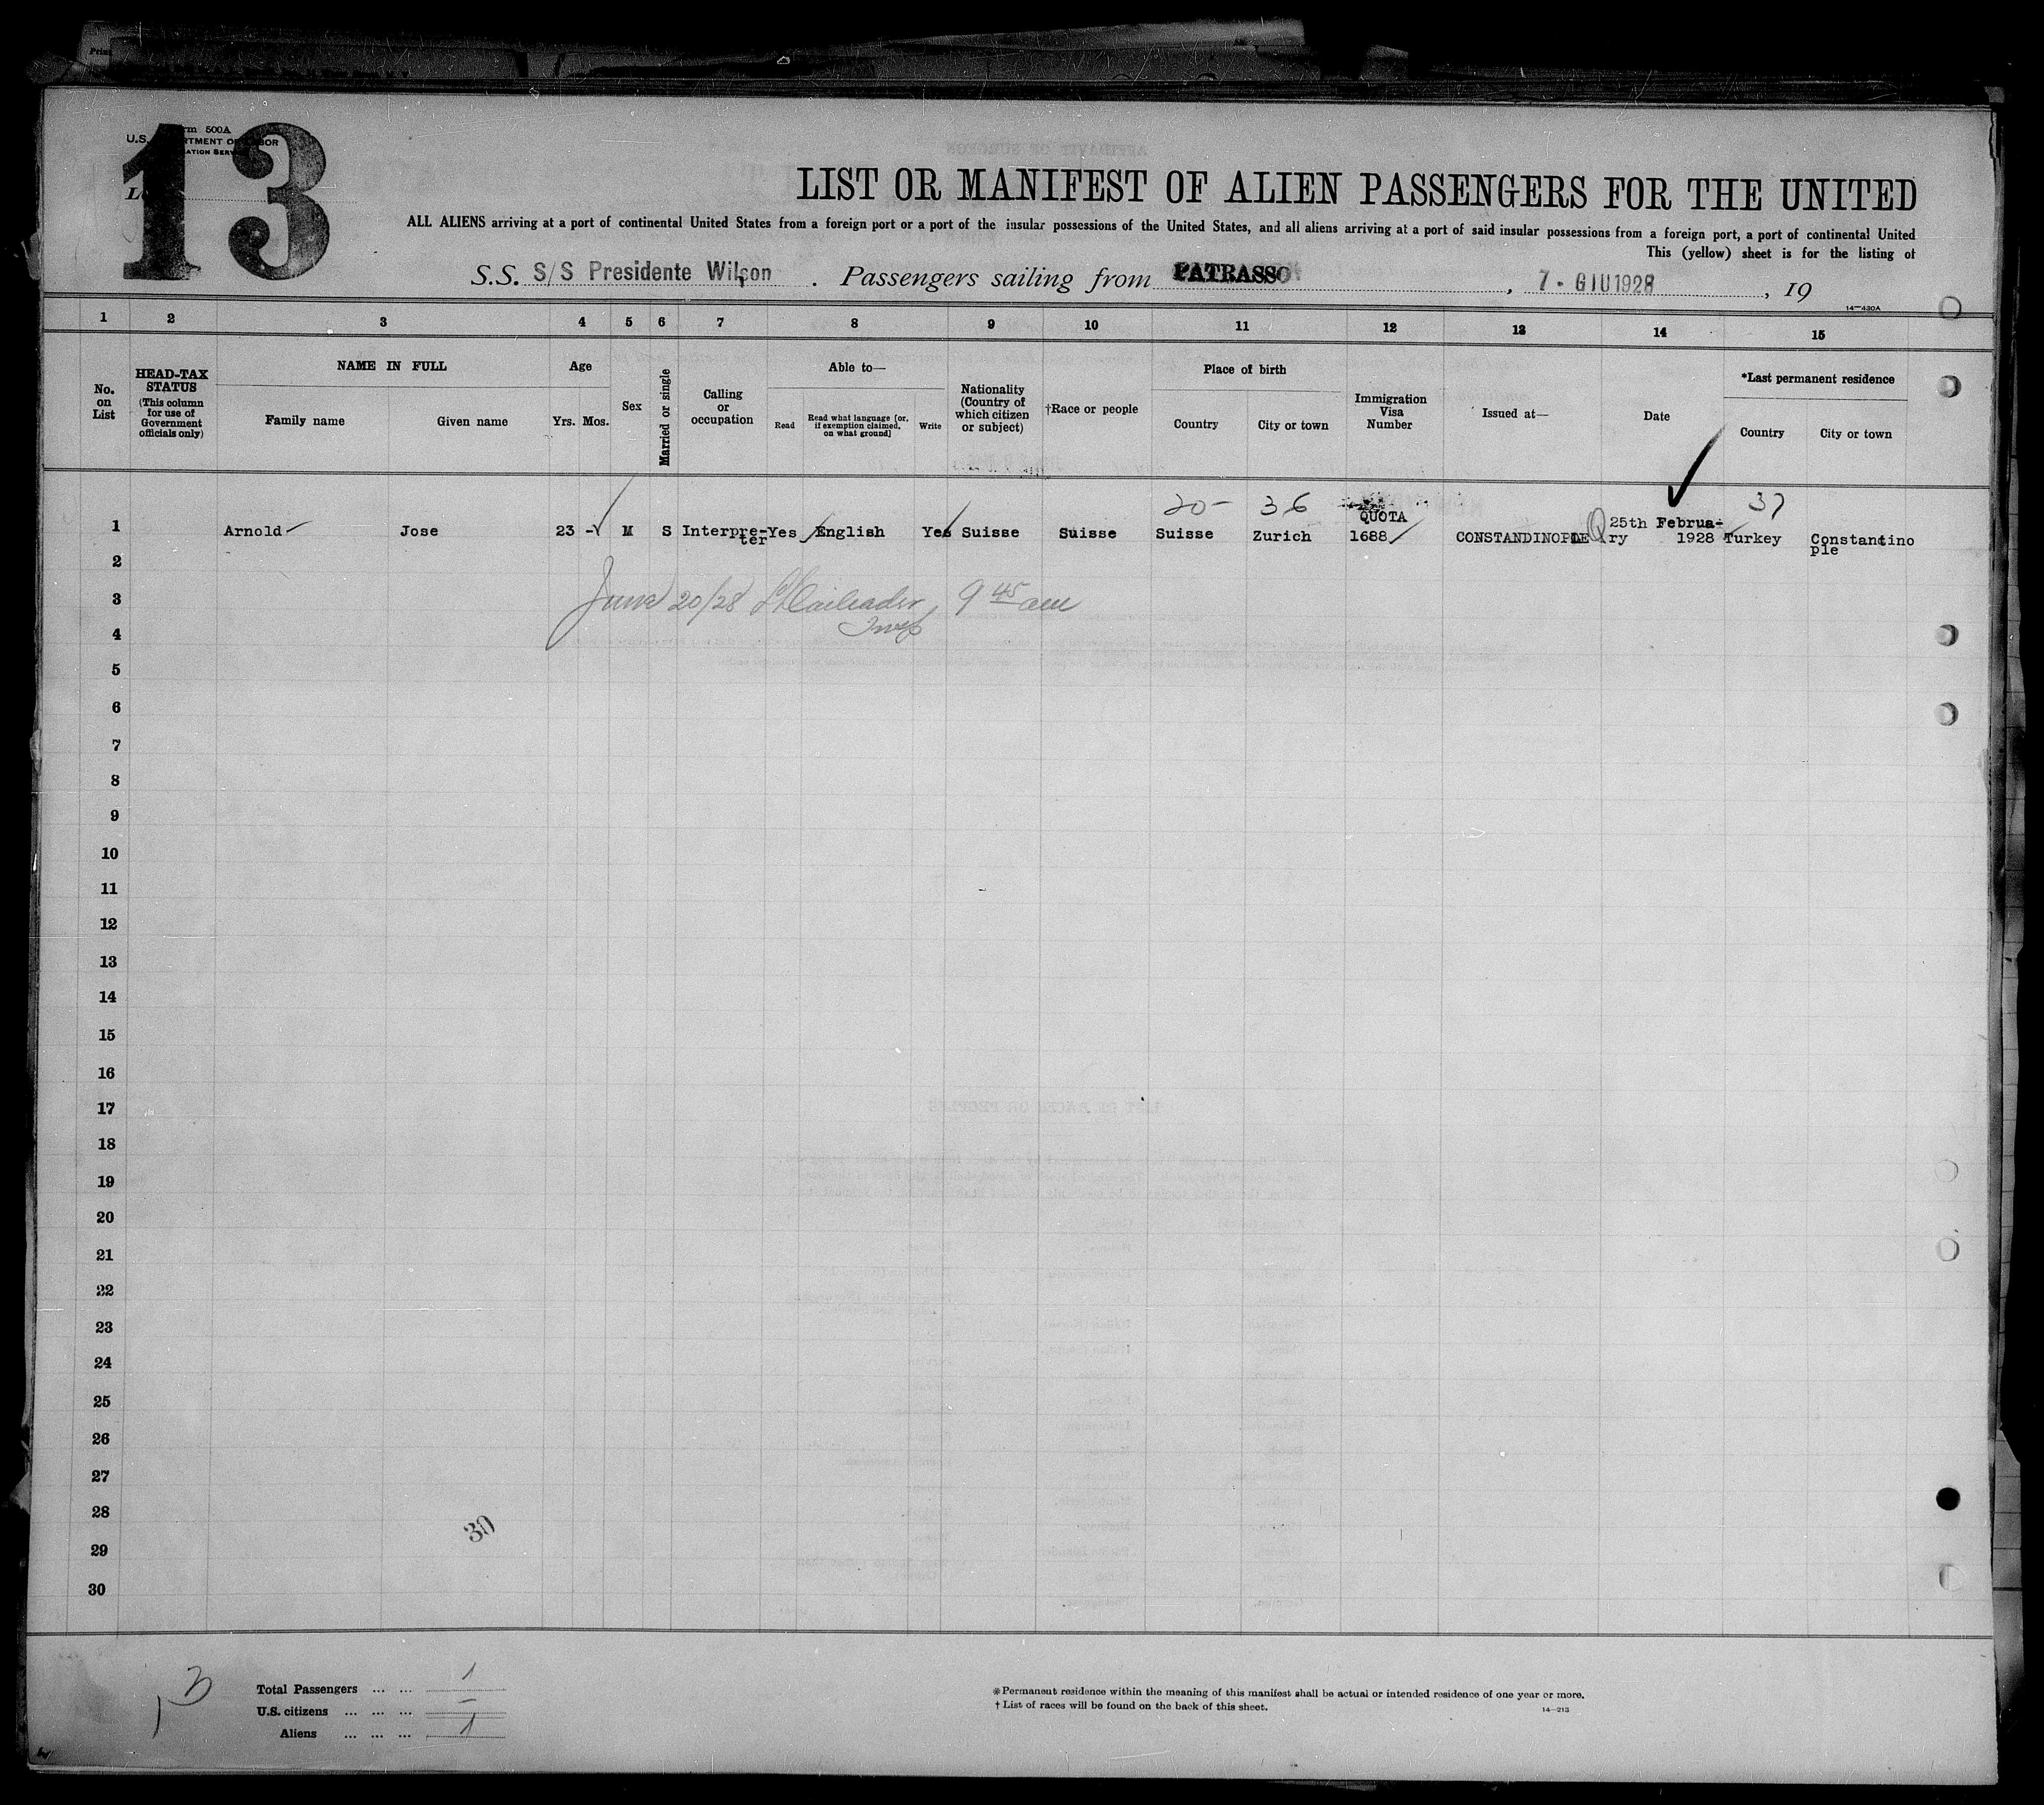 Form 500A
U.S. DEPARTMENT OF LABOR
13
LIST OR MANIFEST OF ALIEN PASSENGERS FOR THE UNITED
ALL ALIENS arriving at a port of continental United States from a foreign port or a port of the insular possessions of the United States, and all aliens arriving at a port of said insular possessions from a foreign port, a port of continental United
This (yellow) sheet is for the listing of
S.S. S/S Presidente Wilson . Passengers sailing from PATRASSO , 7 - GIU 1928 , 19
14—430A
1 2 3 4 5 6 7 8 9 10 11 12 13 14 15
No. on List
HEAD-TAX STATUS (This column for use of Government officials only)
NAME IN FULL
Family name Given name
Age
Yrs. Mos.
Sex
Married or single
Calling or occupation
Able to—
Read Read what language [or, if exemption claimed, on what ground] Write
Nationality (Country of which citizen or subject)
†Race or people
Place of birth
Country City or town
Immigration Visa Number
Issued at—
Date
*Last permanent residence
Country City or town
20- 36 37
QUOTA
1 Arnold Jose 23 - M S Interpre-ter Yes English Yes Suisse Suisse Suisse Zurich 1688 CONSTANDINOPLE Q 25th Februa-ry 1928 Turkey Constantino ple
2
June 20/28 9 45 am
3
Insp
4
5
6
7
8
9
10
11
12
13
14
15
16
17
18
19
20
21
22
23
24
25
26
27
28
30
29
30
Total Passengers ... ... 1
U.S. citizens ... ... ... —
Aliens ... ... ... 1
*Permanent residence within the meaning of this manifest shall be actual or intended residence of one year or more.
†List of races will be found on the back of this sheet.
14—213